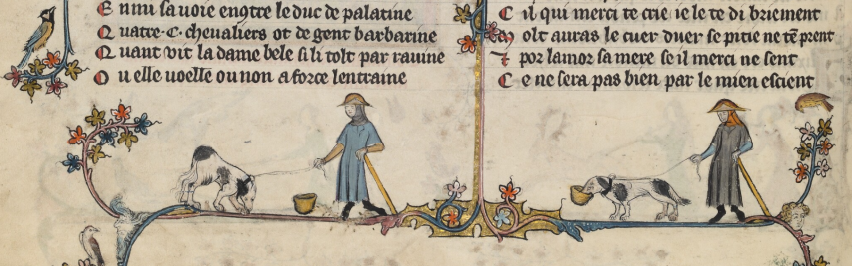 E n mi sa voie enqtre le duc de palatine
Q uatre · C · cheualiers ot de gent barbarine
Q uant vit la dame bele si li tolt par rauine
O u elle voelle ou non a force lentraine
C il qui merci te crie ie le te di briement
olt auras le cuer duer se pitie ne tẽ prent
⁊ por lamor sa mere se il merci ne sent
C e ne sera pas bien par le mien escient